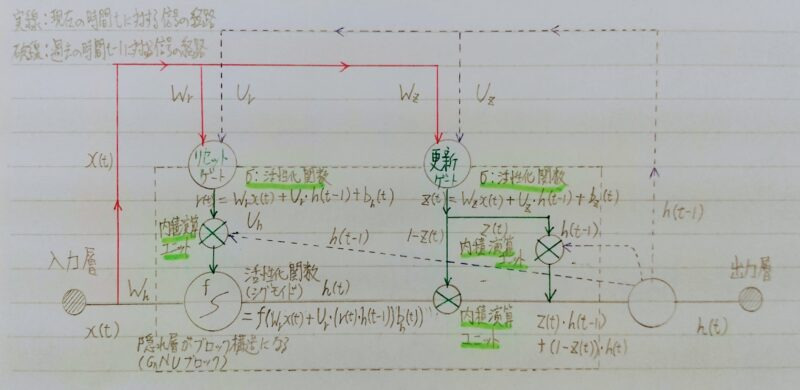 実線:現在の時間tに対する信号の経路
破線:過去の時間t-1に対する信号の経路
Wr
Ur
Wz
Uz
x(t)
リセット
ゲート
更新
ゲート
σ:活性化関数
σ:活性化関数
r(t) = Wrx(t) + Ur・h(t-1) + bh(t)
z(t) = Wzx(t) + Uz・h(t-1) + bz(t)
内積演算
ユニット
Uh
h(t-1)
1-z(t)
z(t)
h(t-1)
内積演算
ユニット
h(t-1)
入力層
Wh
x(t)
f
活性化関数
(シグモイド)
h(t)
= f(Wrx(t) + Ur・(r(t)・h(t-1))bh(t))
内積演算
ユニット
z(t)・h(t-1)
+ (1-z(t))・h(t)
出力層
h(t)
隠れ層がブロック構造になる
(GNUブロック)